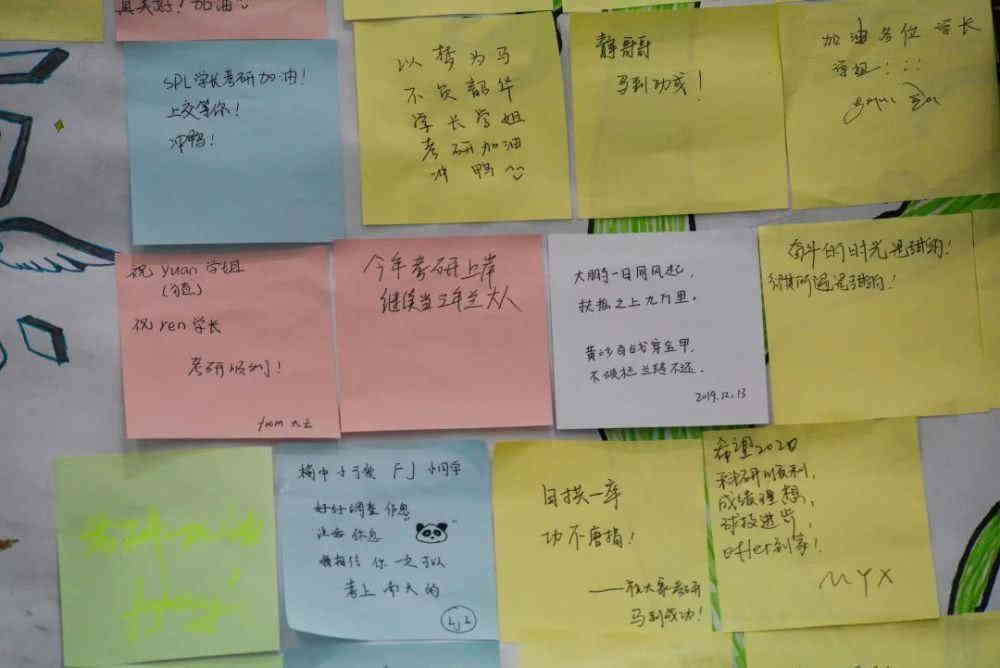 真美好!加油
SPL学长考研加油!
上交等你!
冲鸭!
以梦为马
不负韶华
学长学姐
考研加油
冲鸭
静哥哥
马到功成!
加油各位学长
学姐
祝yuan学姐
祝ren学长
考研顺利!
from
今年考研上岸
继续当三年兰大人
大鹏一日同风起,
扶摇之上九万里。
黄沙百战穿金甲,
不破楼兰终不还。
2019.12.13
奋斗的时光是甜的!
所遇是甜的!
FJ 小同学
好好调整作息
注意休息
我相信你一定可以
考上南大的
LJL
日拱一卒
功不唐捐!
——祝大家考研
马到成功!
希望2020
科研顺利,
成绩理想,
球技进步,
offer到家!
MYX